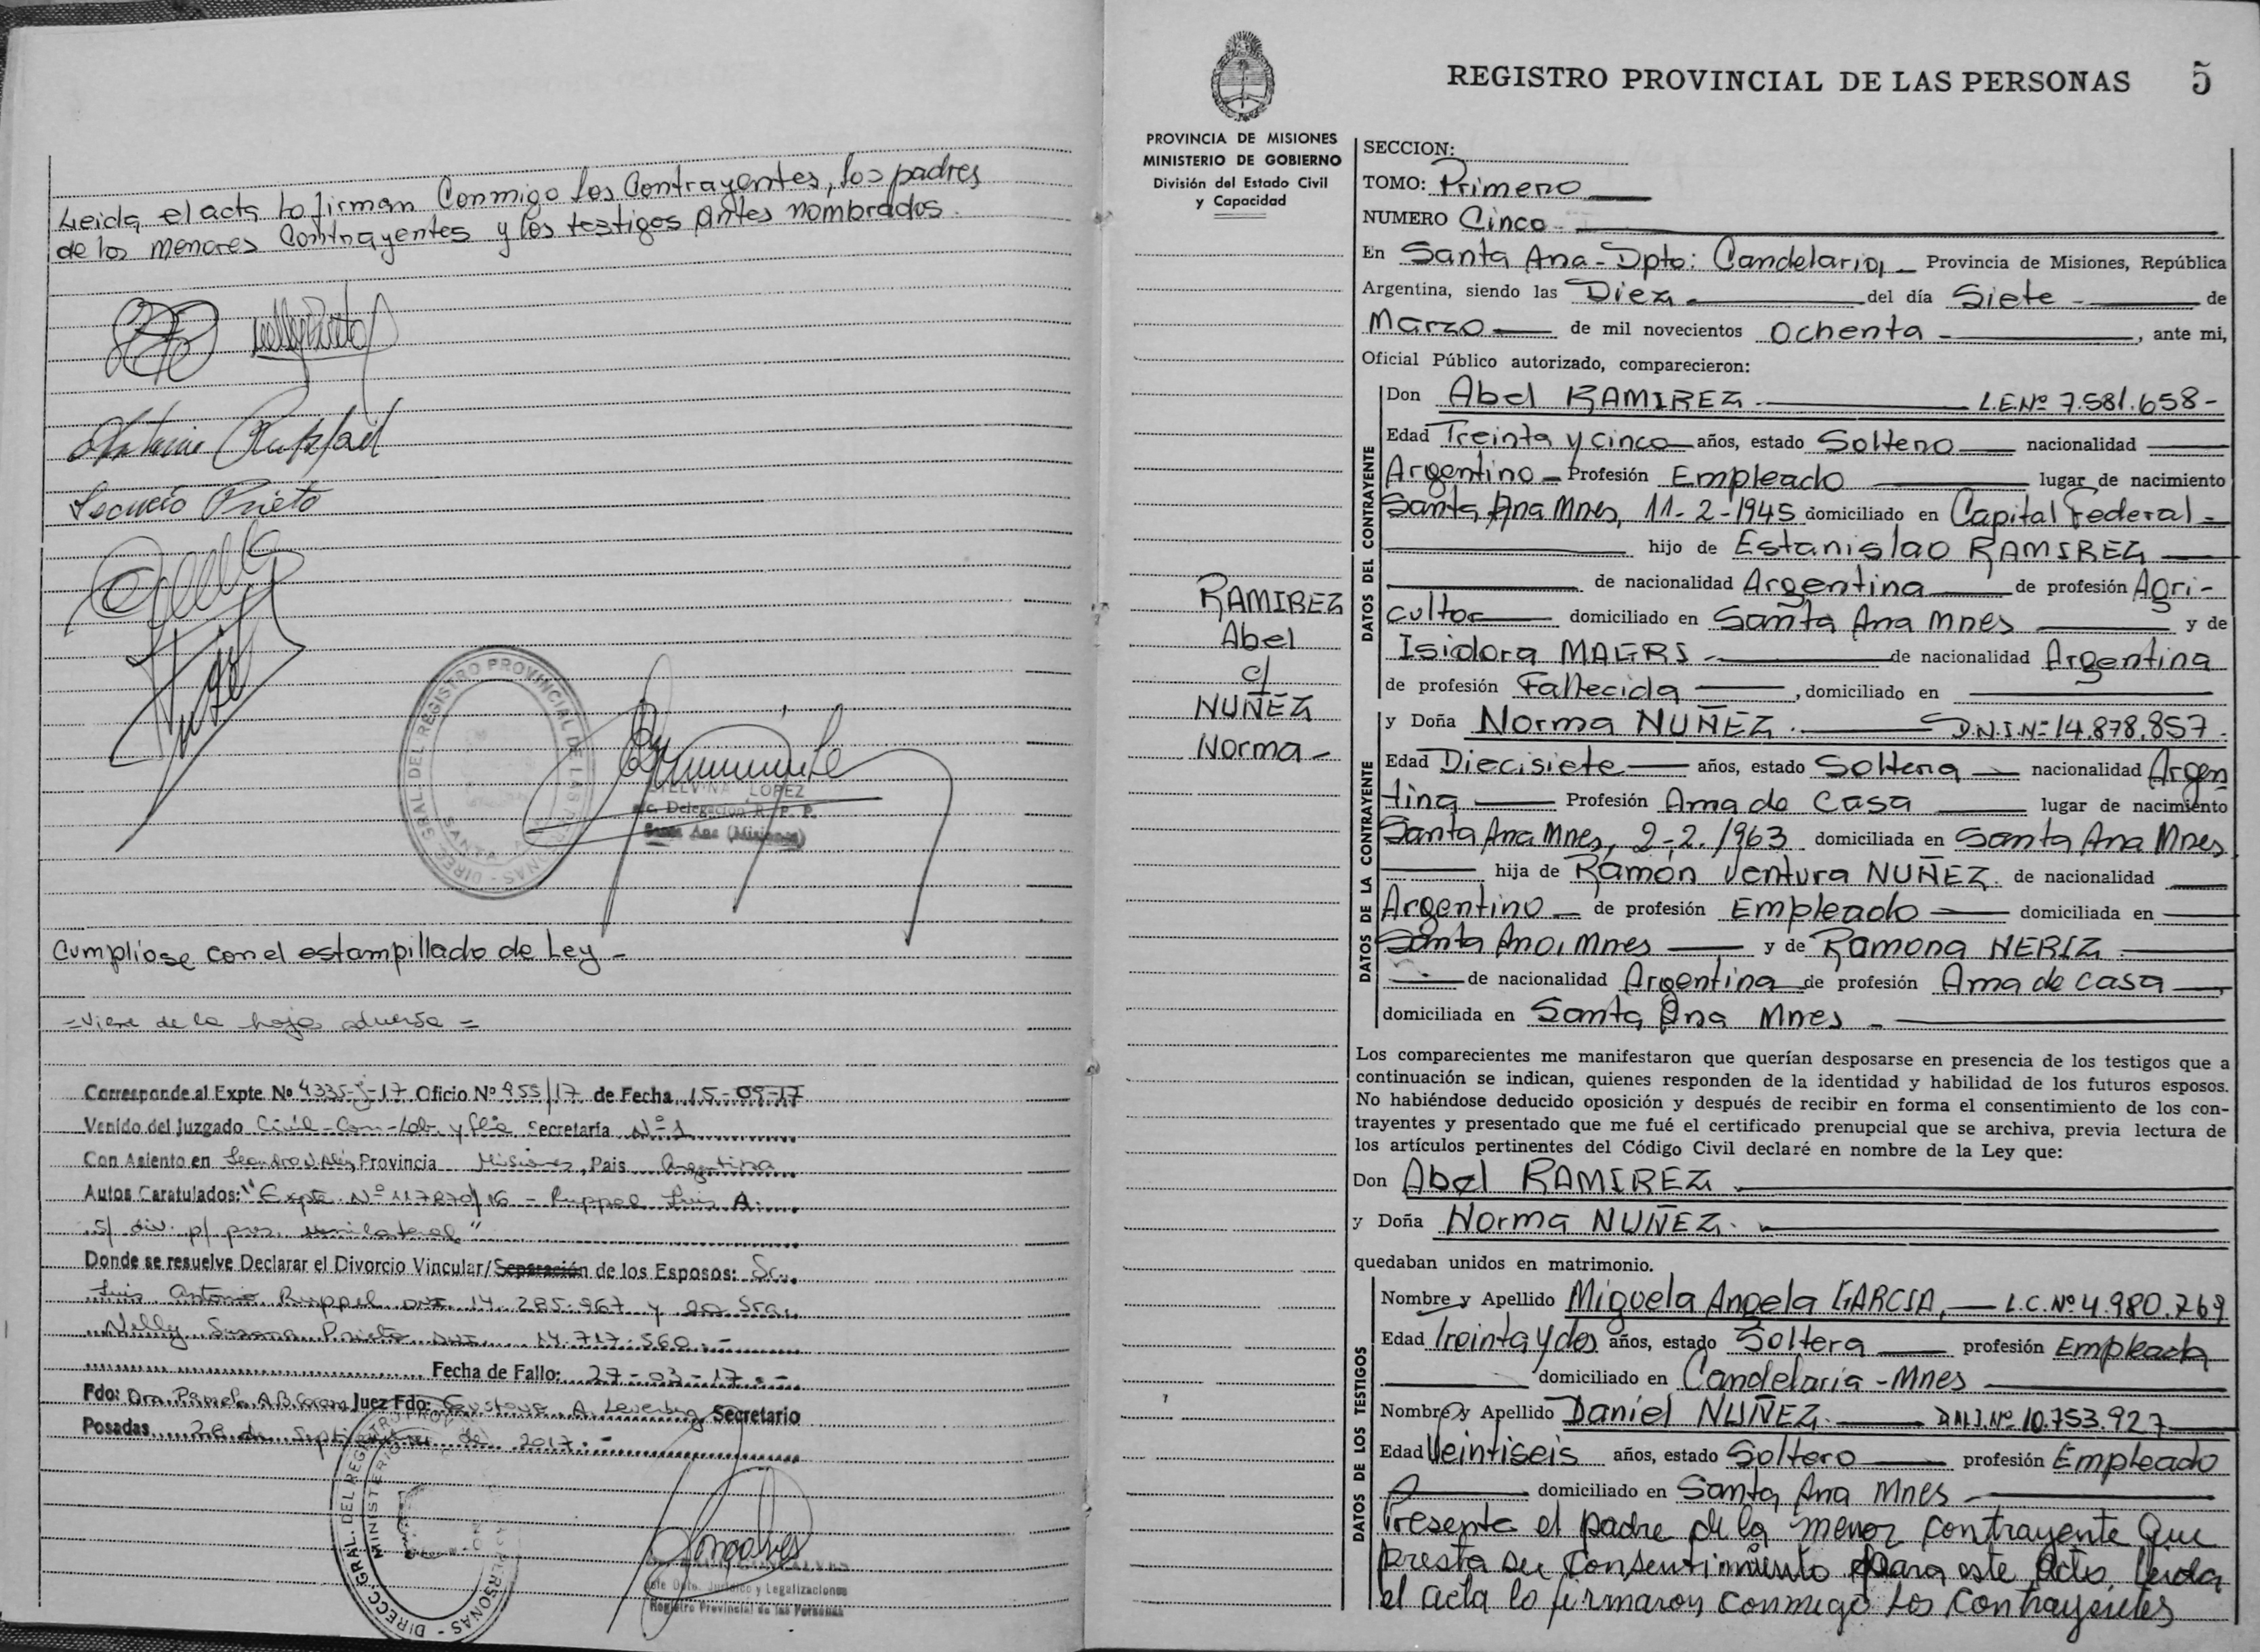 Leida el acta lo firman Conmigo los Contrayentes, los padres
de los menores Contrayentes y los testigos antes nombrados.
Nelly Prieto
Antonio Ruppel
Prieto
DIREC. GRAL. DEL REGISTRO PROVINCIAL DE LAS PERSONAS
LOPEZ
a/c. Delegación R. P. P.
Santa Ana (Misiones)
Cumpliose con el estampillado de Ley -
= Viene de la hoja adversa =
Corresponde al Expte Nº 4335-J-17 Oficio Nº 955/17 de Fecha 15-09-17
Venido del Juzgado Civil-Com-Lab. y flia. Secretaría Nº 1
Con Asiento en Leandro N. Alem, Provincia Misiones, Pais Argentina
Autos Caratulados: "Expte. Nº 117870/16 - Ruppel Luis A.
s/ div. p/ pres. unilateral"
Donde se resuelve Declarar el Divorcio Vincular/Separación de los Esposos: Sr.
Luis Antonio Ruppel DNI. 14.285.967 y la Sra.
Nelly Susana Prieto DNI. 14.717.560.-
Fecha de Fallo: 27-03-17.-
Fdo: Dra. Juez Fdo: Gustavo A. Secretario
Posadas, 28 de Septiembre de 2017.-
DIRECC. GRAL. DEL REGISTRO PERSONAS
MINISTERIO
Jefe Dpto. Jurídico y Legalizaciones
Registro Provincial de las Personas
REGISTRO PROVINCIAL DE LAS PERSONAS 5
PROVINCIA DE MISIONES
MINISTERIO DE GOBIERNO
División del Estado Civil
y Capacidad
RAMIREZ
Abel
c/
NUÑEZ
Norma -
SECCION:
TOMO: Primero
NUMERO Cinco
En Santa Ana - Dpto: Candelaria, - Provincia de Misiones, República
Argentina, siendo las Diez del día Siete de
Marzo de mil novecientos Ochenta , ante mi,
Oficial Público autorizado, comparecieron:
DATOS DEL CONTRAYENTE
Don Abel RAMIREZ L.E.Nº 7.581.658-
Edad Treinta y cinco años, estado Soltero nacionalidad
Argentino - Profesión Empleado lugar de nacimiento
Santa Ana Mnes, 11-2-1945 domiciliado en Capital Federal -
hijo de Estanislao RAMIREZ
de nacionalidad Argentina de profesión Agri-
cultor domiciliado en Santa Ana Mnes y de
Isidora MAGRI - de nacionalidad Argentina
de profesión Fallecida , domiciliado en
DATOS DE LA CONTRAYENTE
y Doña Norma NUÑEZ. D.N.I.Nº 14.878.857.
Edad Diecisiete años, estado Soltera nacionalidad Argen
tina Profesión Ama de Casa lugar de nacimiento
Santa Ana Mnes, 2-2-1963 domiciliada en Santa Ana Mnes
hija de Ramón Ventura NUÑEZ. de nacionalidad
Argentino - de profesión Empleado domiciliada en
Santa Ana, Mnes y de Ramona NERIZ
de nacionalidad Argentina de profesión Ama de casa
domiciliada en Santa Ana Mnes -
Los comparecientes me manifestaron que querían desposarse en presencia de los testigos que a
continuación se indican, quienes responden de la identidad y habilidad de los futuros esposos.
No habiéndose deducido oposición y después de recibir en forma el consentimiento de los con-
trayentes y presentado que me fué el certificado prenupcial que se archiva, previa lectura de
los artículos pertinentes del Código Civil declaré en nombre de la Ley que:
Don Abel RAMIREZ
y Doña Norma NUÑEZ.
quedaban unidos en matrimonio.
DATOS DE LOS TESTIGOS
Nombre y Apellido Miguela Angela GARCIA, - L.C.Nº 4.980.769
Edad Treinta y dos años, estado Soltera profesión Empleada
domiciliado en Candelaria - Mnes
Nombre y Apellido Daniel NUÑEZ. D.N.I.Nº 10.753.927
Edad Veintiseis años, estado Soltero profesión Empleado
domiciliado en Santa Ana Mnes
Presente el padre de la menor contrayente que
presta su consentimiento para este acto. Leida
el acta lo firmaron conmigo los contrayentes